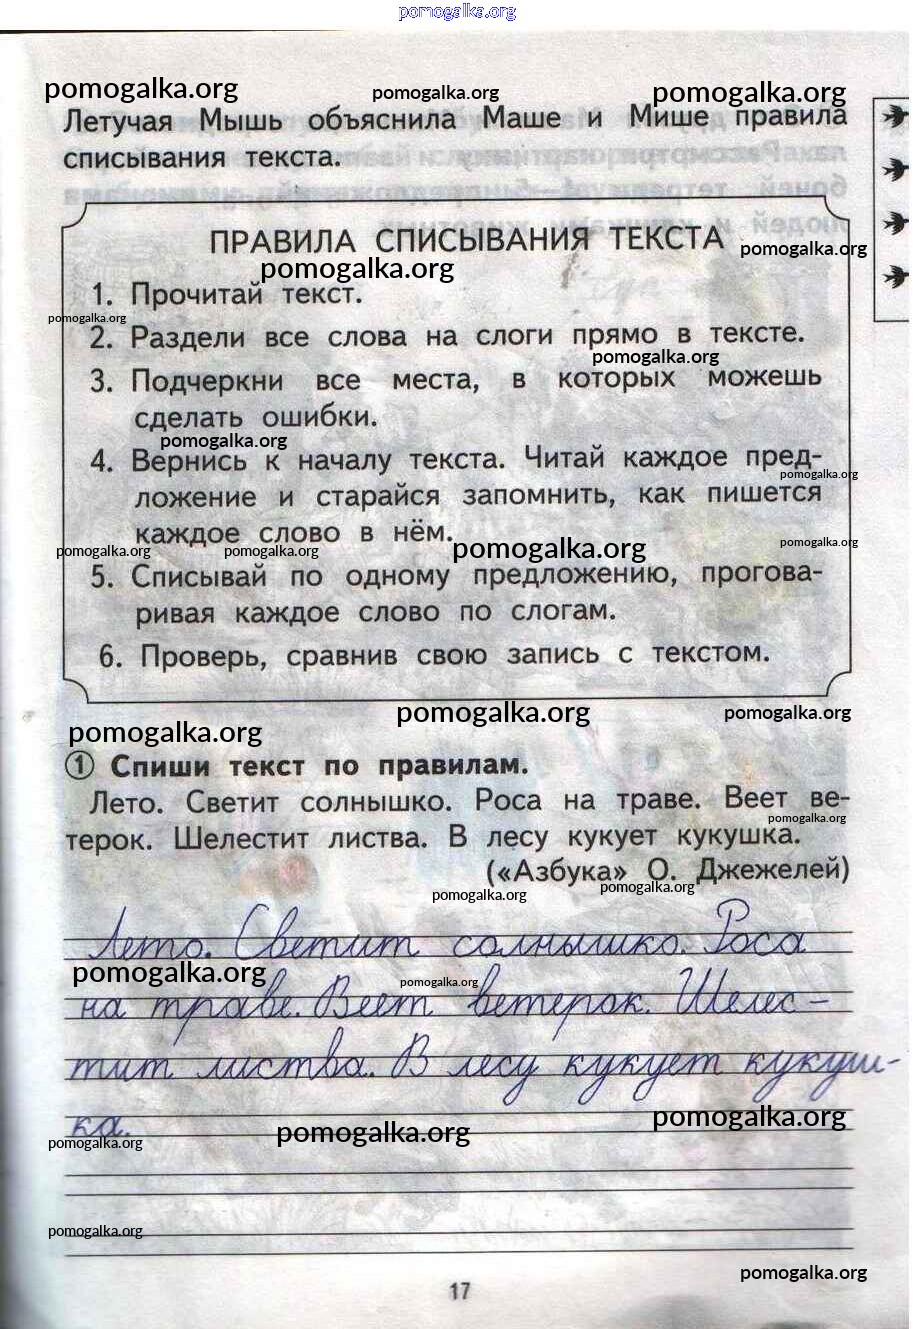 pomogalka.org
pomogalka.org
pomogalka.org
pomogalka.org
Летучая Мышь объяснила Маше и Мише правила
списывания текста.
ПРАВИЛА СПИСЫВАНИЯ ТЕКСТА
pomogalka.org
pomogalka.org
1. Прочитай текст.
pomogalka.org
2. Раздели все слова на слоги прямо в тексте.
pomogalka.org
3. Подчеркни все места, в которых можешь
сделать ошибки.
pomogalka.org
4. Вернись к началу текста. Читай каждое пред-
pomogalka.org
ложение и старайся запомнить, как пишется
каждое слово в нём.
pomogalka.org
pomogalka.org
pomogalka.org
pomogalka.org
5. Списывай по одному предложению, прогова-
ривая каждое слово по слогам.
6. Проверь, сравнив свою запись с текстом.
pomogalka.org
pomogalka.org
pomogalka.org
1 Спиши текст по правилам.
Лето. Светит солнышко. Роса на траве. Веет ве-
pomogalka.org
терок. Шелестит листва. В лесу кукует кукушка.
(«Азбука» О. Джежелей)
pomogalka.org
pomogalka.org
Лето. Светит солнышко. Роса
pomogalka.org
pomogalka.org
на траве. Веет ветерок. Шелес-
тит листва. В лесу кукует кукуш-
ка.
pomogalka.org
pomogalka.org
pomogalka.org
pomogalka.org
pomogalka.org
17